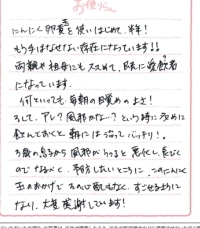 お便りらん
にんにく卵黄を使いはじめて、半年!
もう今はなせない存在になっています!!
両親や祖母にもススめて、既に愛飲者
になっています。
何といっても毎朝の目覚めの良さ!
そして、アレ?風邪かな…?という時に多めに
飲んでおくと朝にはなってバッチリ!。
3歳の息子から風邪がうつると悪化し、長びく
ので なるべく、予防したいところに、このにんにく
玉のおかげで その心配もなく、すごせるように
なり、大変感謝しています!